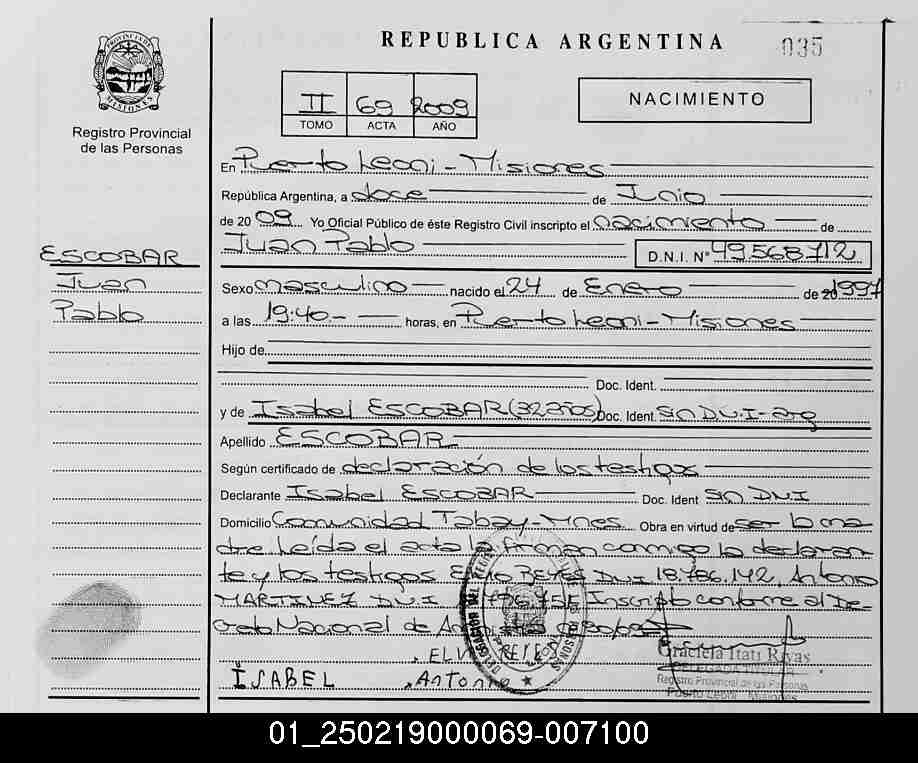 REPUBLICA ARGENTINA
035
PROVINCIA DE MISIONES
Registro Provincial
de las Personas
II 69 2009
TOMO ACTA AÑO
NACIMIENTO
En Puerto Leoni - Misiones
República Argentina, a doce de Junio
de 2009 Yo Oficial Público de éste Registro Civil inscripto el nacimiento de
Juan Pablo D.N.I. N° 49.568.712
ESCOBAR
Juan
Pablo
Sexo masculino nacido el 24 de Enero de 201997
a las 19:40.- horas, en Puerto Leoni - Misiones
Hijo de
Doc. Ident.
y de Isabel ESCOBAR Doc. Ident. S/n D.N.I - arg
Apellido ESCOBAR
Según certificado de declaración de los testigos
Declarante Isabel ESCOBAR Doc. Ident S/n DNI
Domicilio Comunidad Tabay - Mnes Obra en virtud de ser la ma
dre Leída el acta la firman conmigo la declaran
te y los testigos REYES DNI 18.786.142, Antonio
MARTINEZ DNI Inscripto conforme al De-
creto Nacional de
ELV REYES
Graciela Itatí Rivas
DELEGADA
Registro Provincial de las Personas
Puerto Leoni - Misiones
ISABEL Antonio
01_250219000069-007100